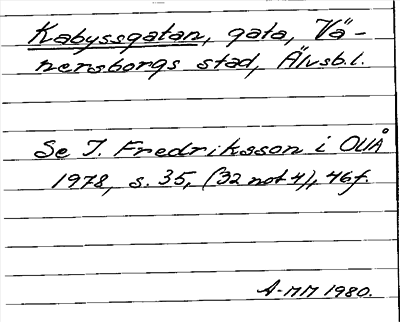 Kabyssgatan, gata, Vä-
nersborgs stad, Älvsb.l.
Se I. Fredriksson i OUÅ
1978, s. 35, (32 not 4), 46f.
A-MM 1980.